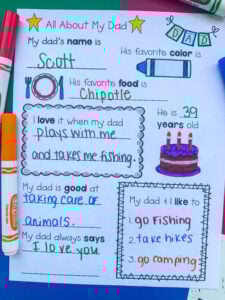 All About My Dad
DAD
My dad's name is
Scott
His favorite color is
His favorite food is
Chipotle
I love it when my dad
plays with me
and takes me fishing.
He is 39
years old
My dad is good at
taking care of
animals.
My dad always says
I love you
My dad & I like to
1. go fishing
2. take hikes
3. go camping